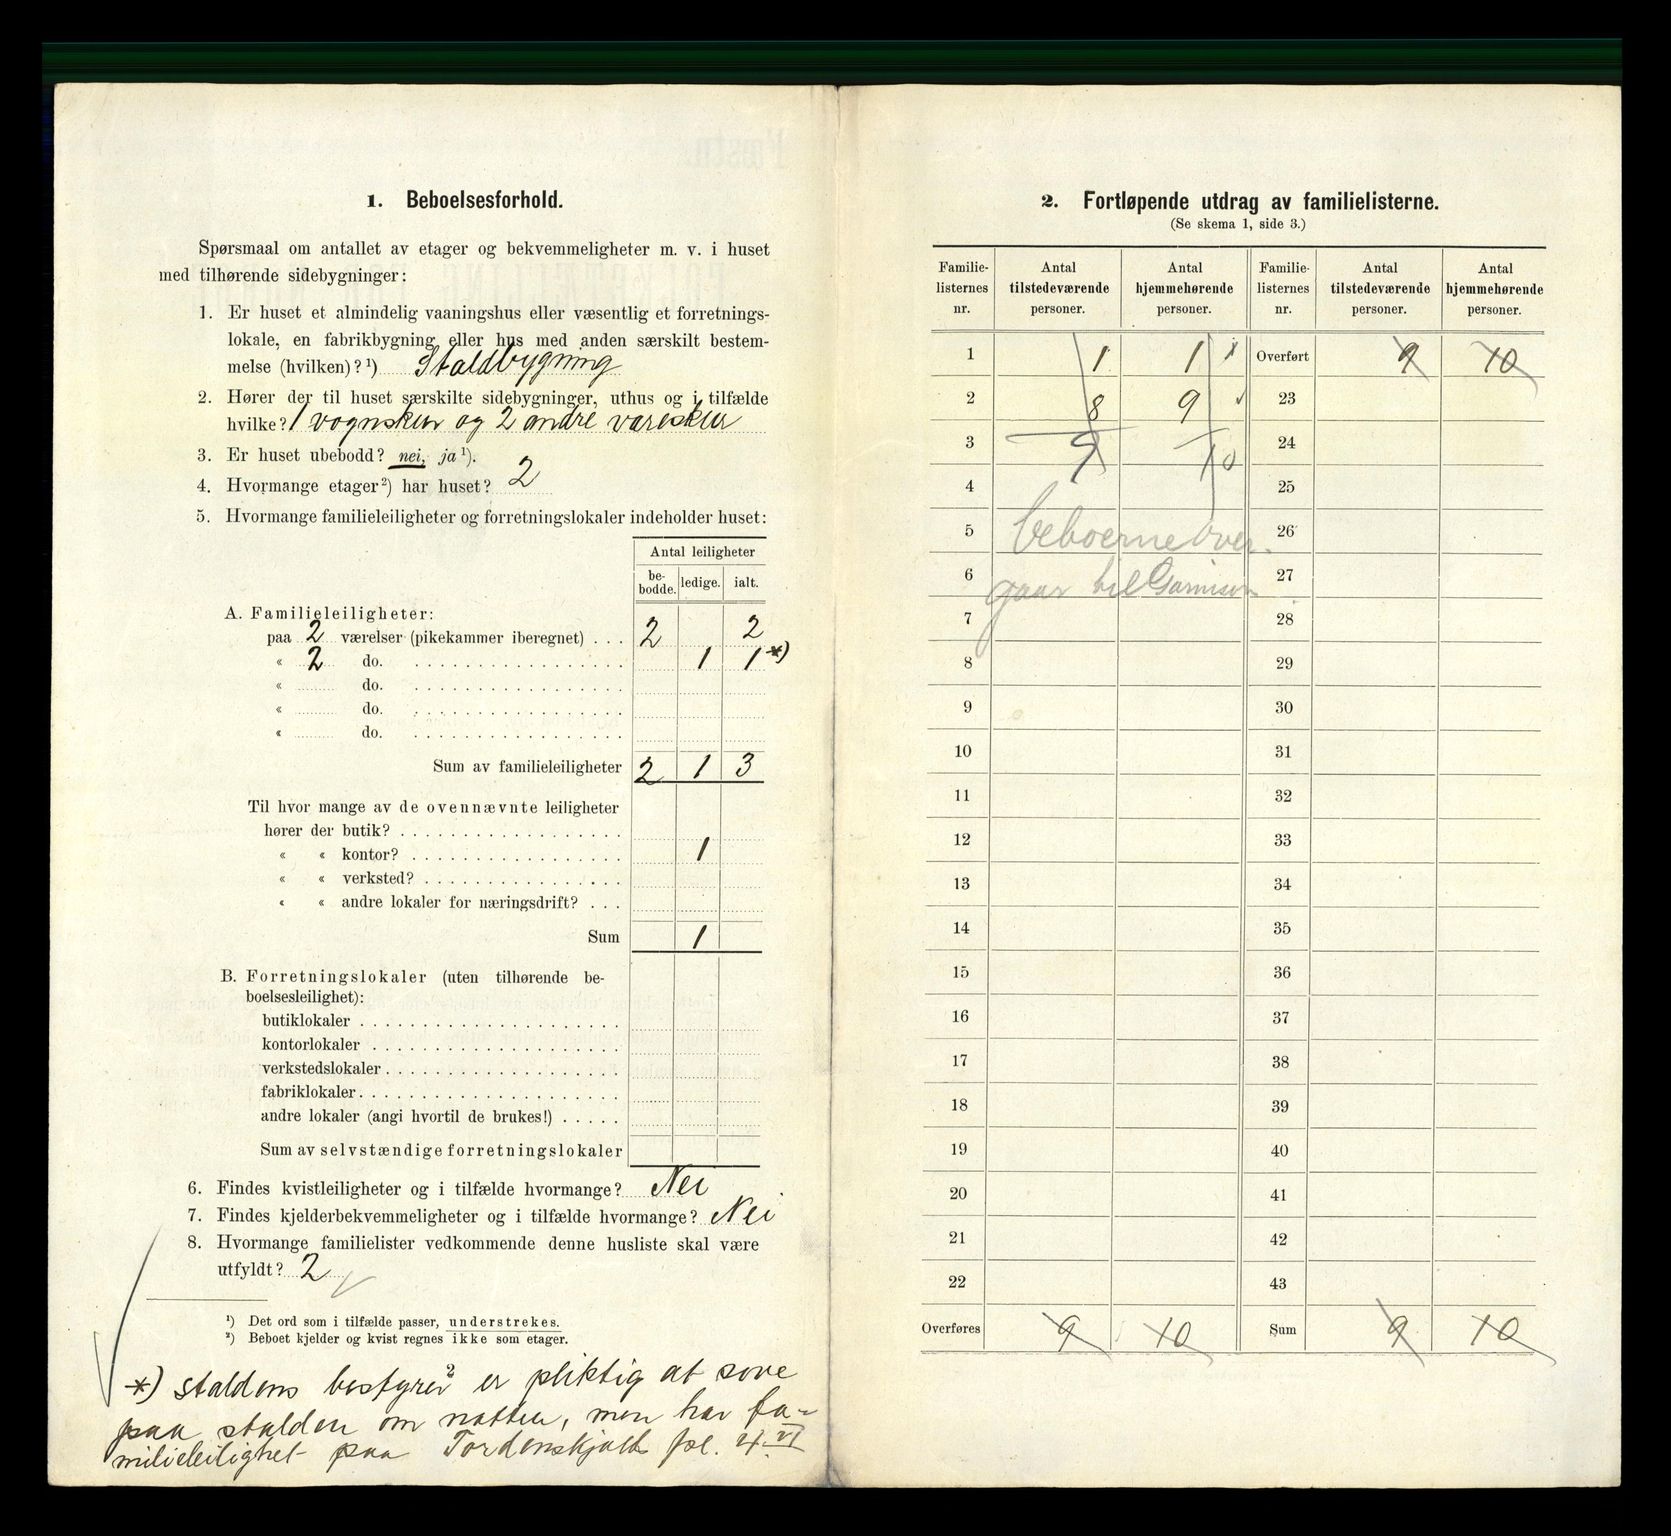 1. Beboelsesforhold.
Spørsmaal om antallet av etager og bekvemmeligheter m. v. i huset
med tilhørende sidebygninger:
1. Er huset et almindelig vaaningshus eller væsentlig et forretnings-
lokale, en fabrikbygning eller hus med anden særskilt bestem-
melse (hvilken)?¹) Staldbygning
2. Hører der til huset særskilte sidebygninger, uthus og i tilfælde
hvilke? 1 vognskur og 2 andre vareskur
3. Er huset ubebodd? nei, ja¹).
4. Hvormange etager²) har huset? 2
5. Hvormange familieleiligheter og forretningslokaler indeholder huset:
Antal leiligheter
be-bodde. ledige. ialt.
A. Familieleiligheter:
paa 2 værelser (pikekammer iberegnet) . . . 2 2
« 2 do. 1 1 *)
« do.
« do.
« do.
Sum av familieleiligheter 2 1 3
Til hvor mange av de ovennævnte leiligheter
hører der butik?
« « kontor? 1
« « verksted?
« « andre lokaler for næringsdrift?
Sum 1
B. Forretningslokaler (uten tilhørende be-
boelsesleilighet):
butiklokaler
kontorlokaler
verkstedslokaler
fabriklokaler
andre lokaler (angi hvortil de brukes!)
Sum av selvstændige forretningslokaler
6. Findes kvistleiligheter og i tilfælde hvormange? Nei
7. Findes kjelderbekvemmeligheter og i tilfælde hvormange? Nei
8. Hvormange familielister vedkommende denne husliste skal være
utfyldt? 2
¹) Det ord som i tilfælde passer, understrekes.
²) Beboet kjelder og kvist regnes ikke som etager.
*) staldens bestyrer er pliktig at sove
paa stalden om natten, men har fa-
milieleilighet paa Tordenskjolds pl. 4 VI
2. Fortløpende utdrag av familielisterne.
(Se skema 1, side 3.)
Familie-listernes nr. Antal tilstedeværende personer. Antal hjemmehørende personer. Familie-listernes nr. Antal tilstedeværende personer. Antal hjemmehørende personer.
1 1 1 Overført 9 10
2 8 9 23
3 9 10 24
4 25
5 beboerne over- 26
6 gaar til Garnison 27
7 28
8 29
9 30
10 31
11 32
12 33
13 34
14 35
15 36
16 37
17 38
18 39
19 40
20 41
21 42
22 43
Overføres 9 10 Sum 9 10